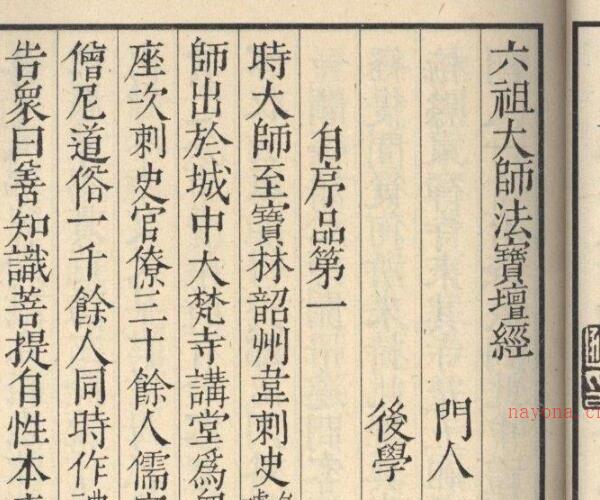 六祖大師法寶壇經
門人
後學
自序品第一
時大師至寶林韶州韋刺史
師出於城中大梵寺講堂爲
座次刺史官僚三十餘人儒
僧尼道俗一千餘人同時作禮
告衆曰善知識菩提自性本
nayona.c